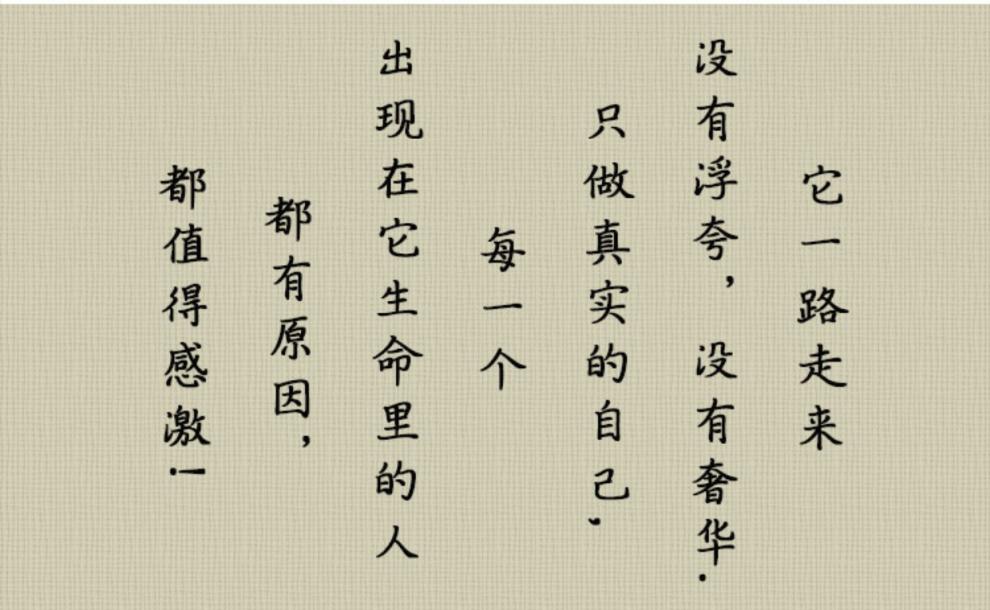 它一路走来
没有浮夸，没有奢华.
只做真实的自己，
每一个
出现在它生命里的人
都有原因，
都值得感激！